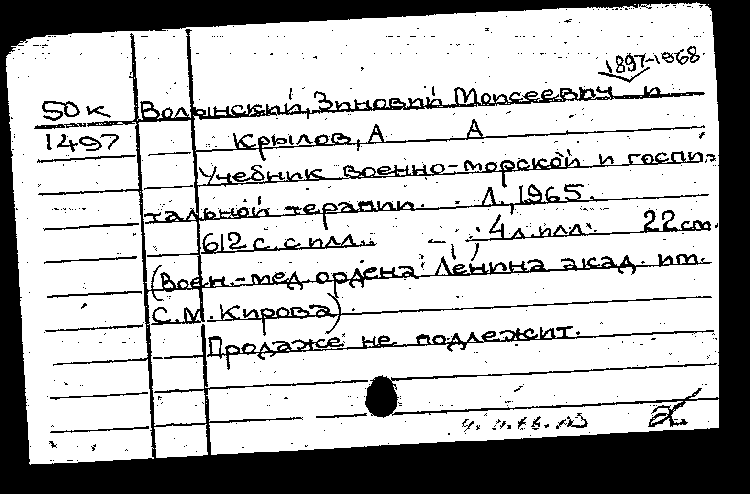 1897-1968
50к Волынский, Зиновий Моисеевич и
1497 Крылов, А А
Учебник военно-морской и госпи-
тальной терапии. Л., 1965.
612 с. с илл.; 4 л. илл. 22 см.
(Воен.-мед. ордена Ленина акад. им.
С.М. Кирова).
Продаже не подлежит.